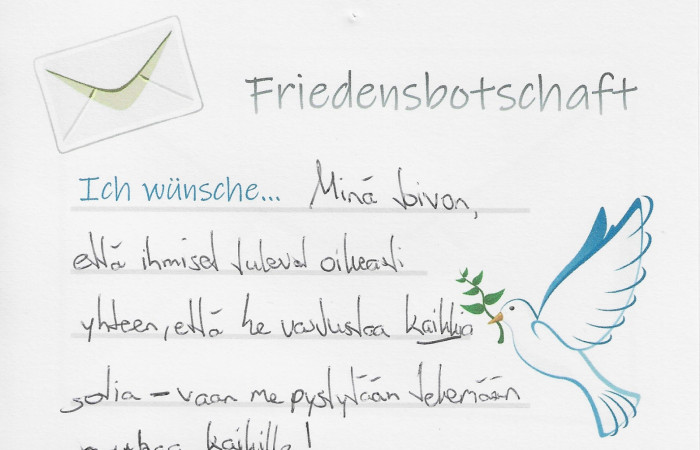 Friedensbotschaft
Ich wünsche... Minä toivon,
että ihmiset tulevat oikeasti
yhteen, että he vastustaa kaikkia
sotia – vaan me pystytään tekemään
kaikille!